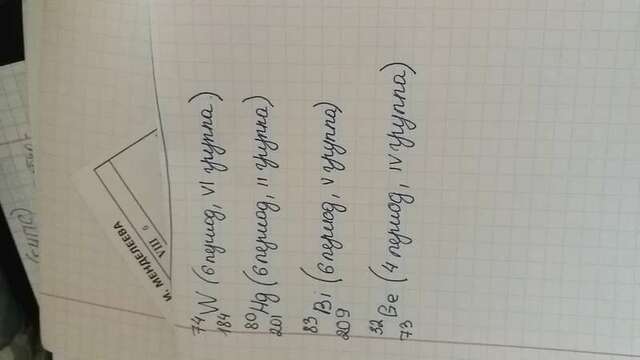 И. МЕНДЕЛЕЕВА
VIII б
74
W (6 период, VI группа)
184
80
Hg (6 период, II группа)
201
83
Bi (6 период, V группа)
209
32
Ge (4 период, IV группа)
73